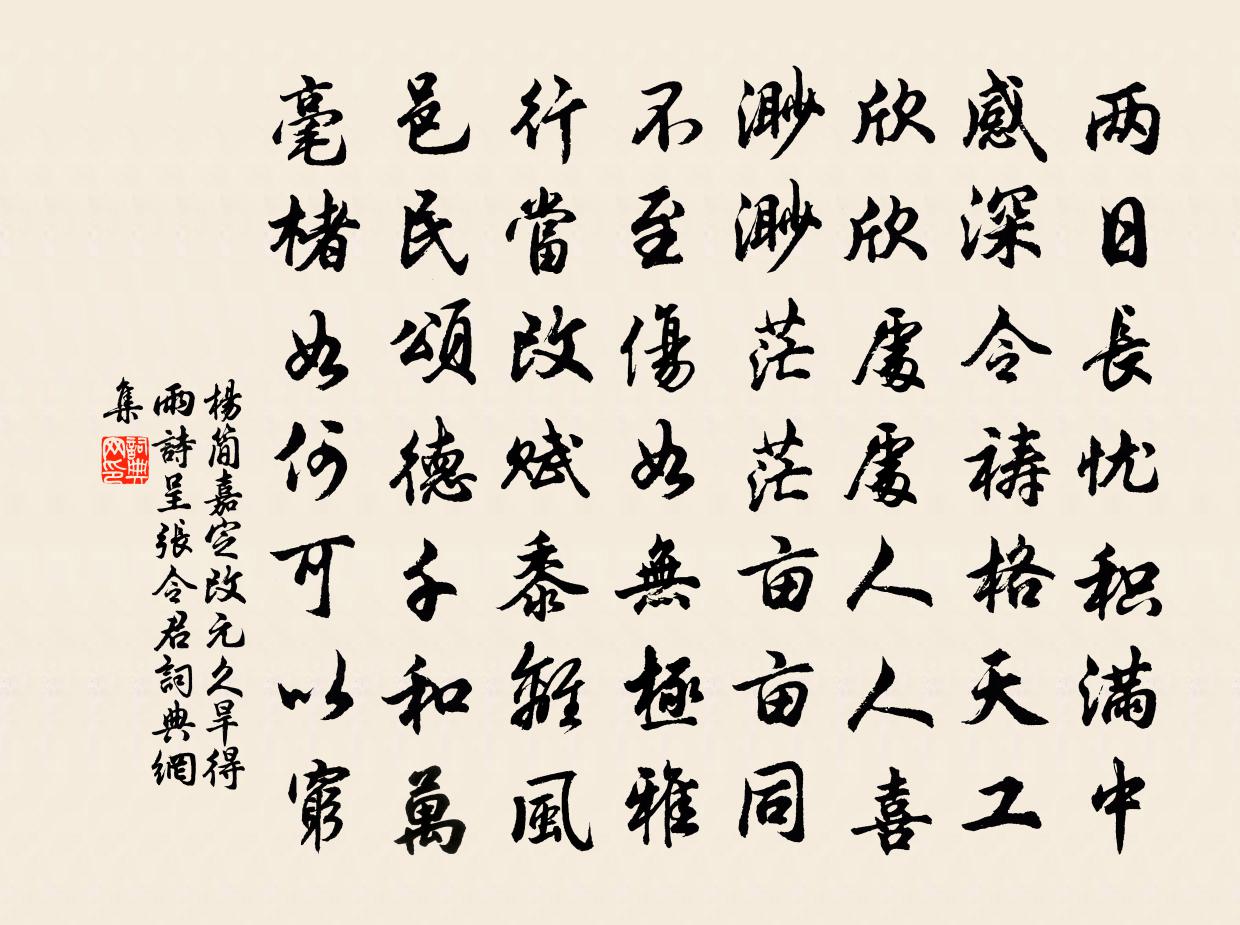 两日長忧积满中
感深令祷格天工
欣欣處處人人喜
渺渺茫茫亩亩同
不至傷如無極雅
行當改赋黍離風
邑民頌德千和萬
毫楮如何可以窮
楊简嘉定改元久旱得
雨詩呈張令君詞典網
集
詞典网印